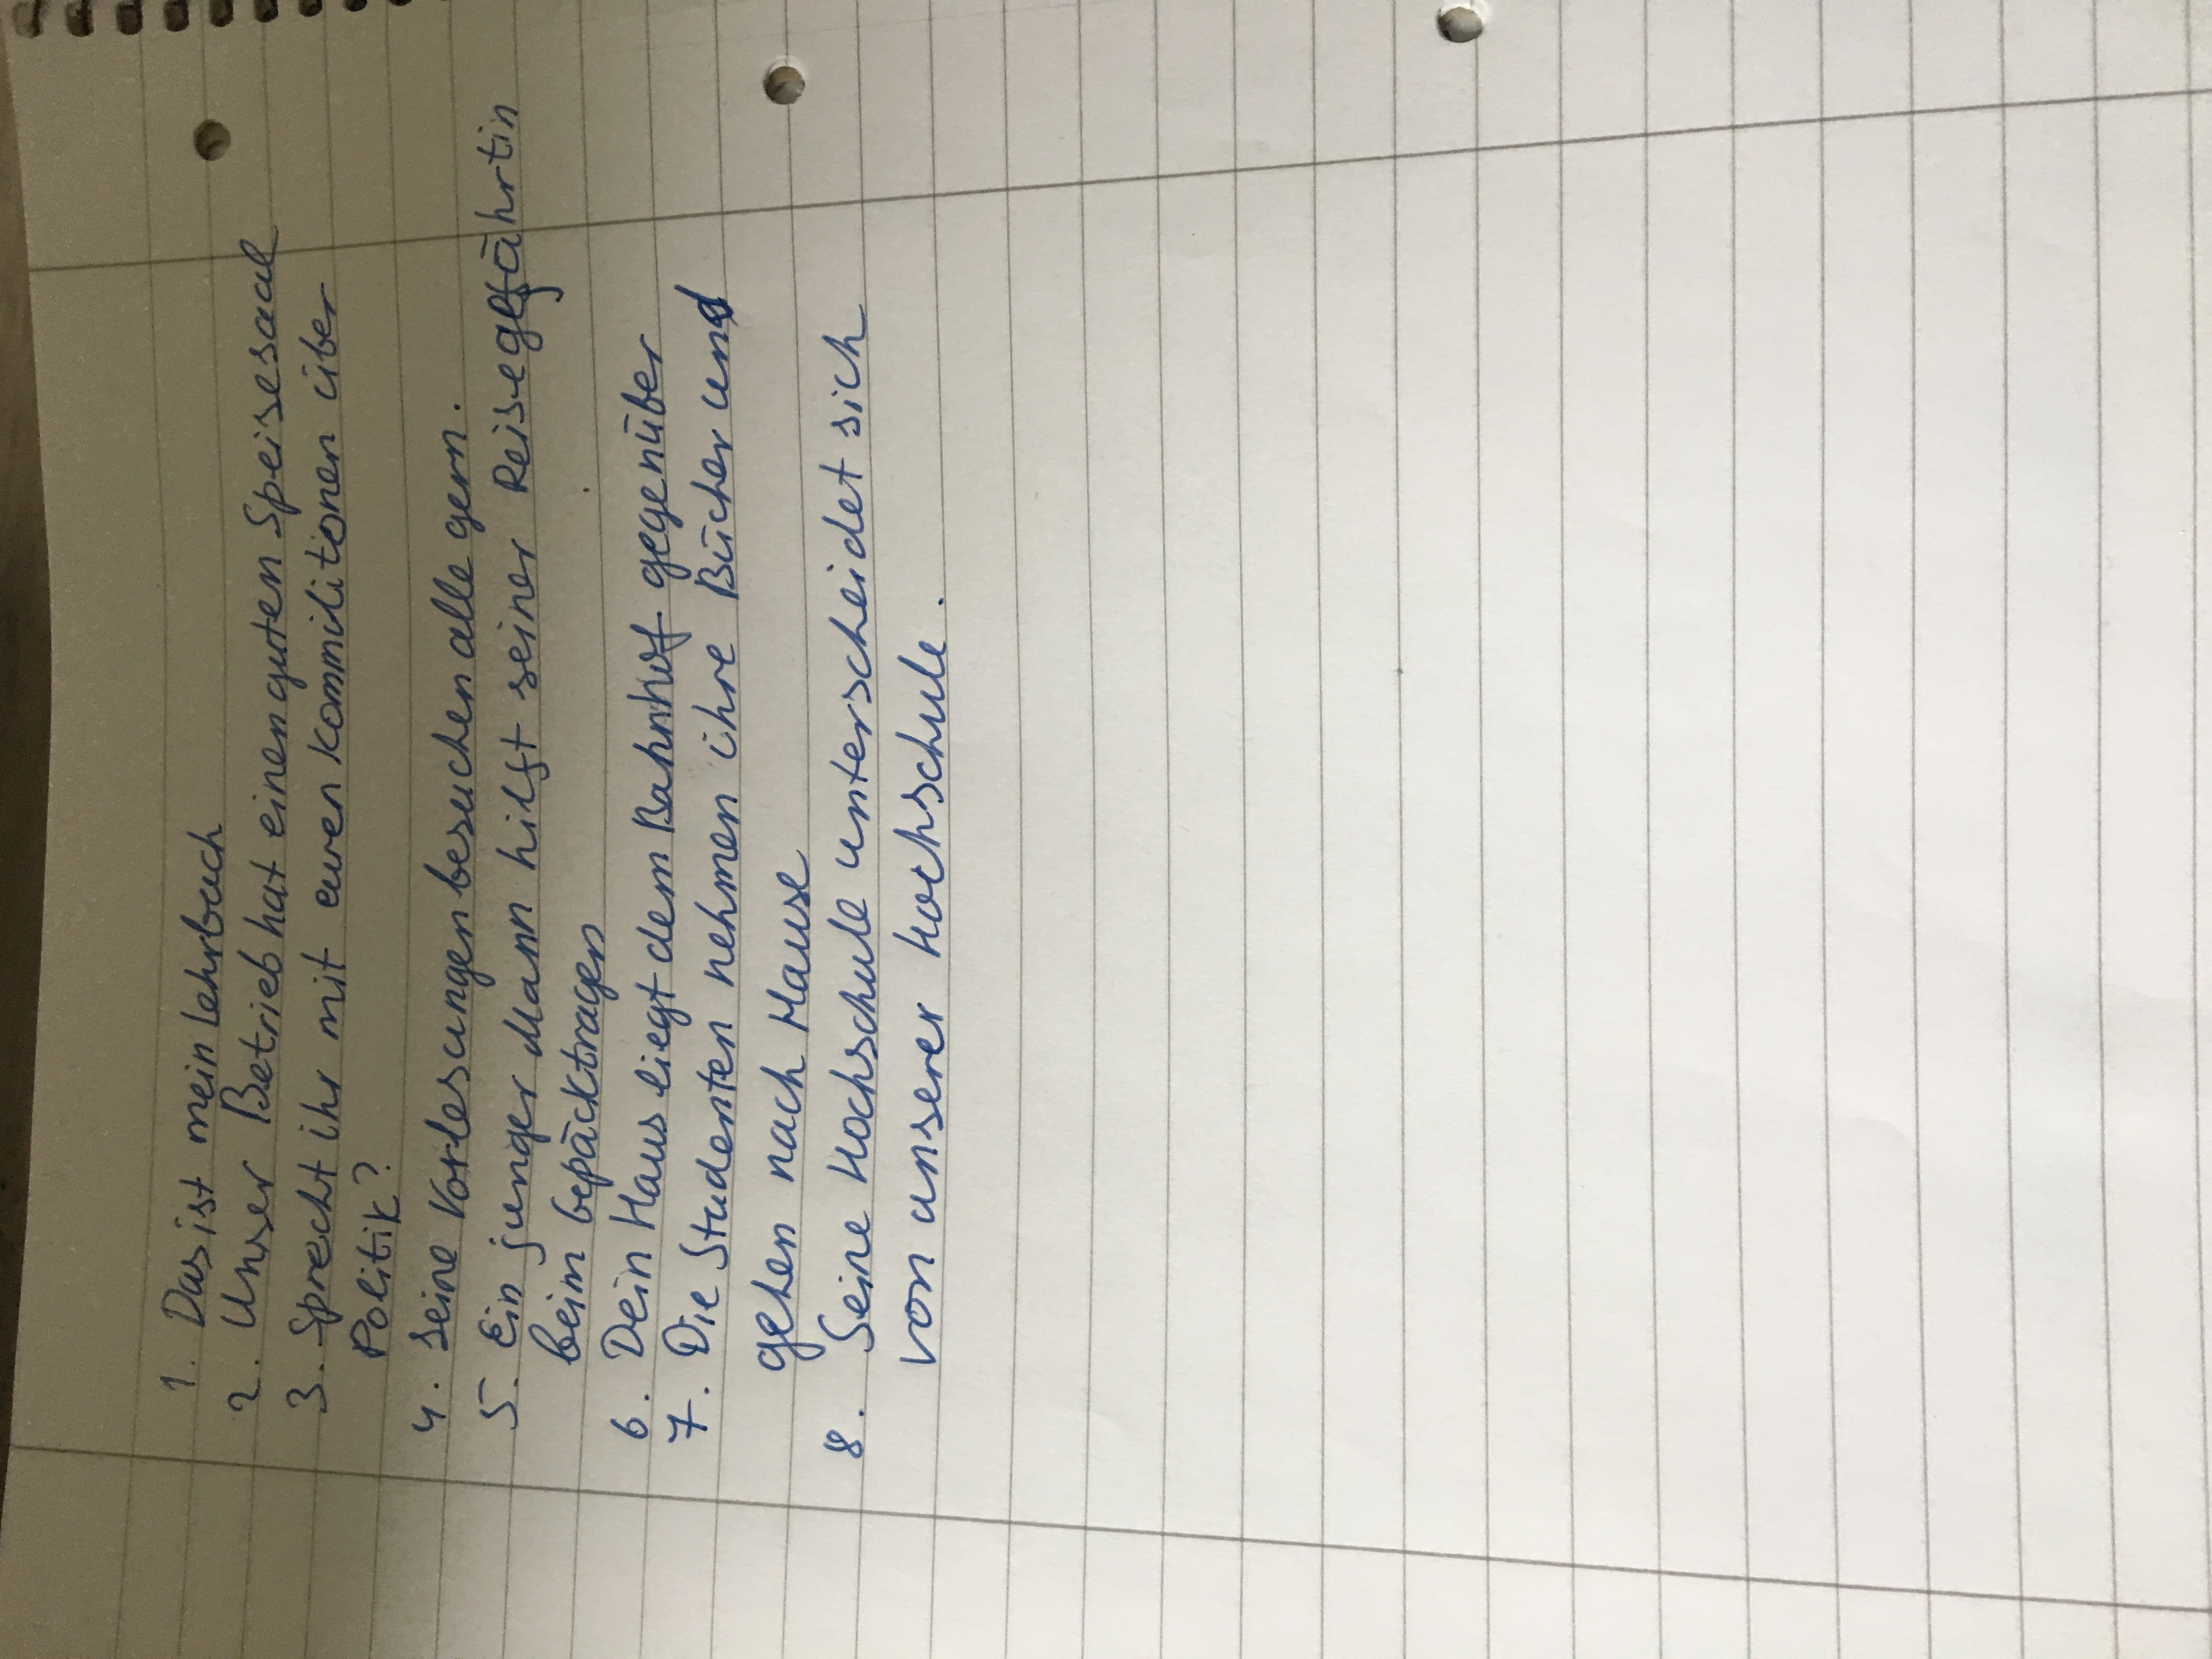 1. Das ist mein Lehrbuch
2. Unser Betrieb hat einen guten Speisesaal
3. Sprecht ihr mit euren Kommilitonen über
Politik?
4. Seine Vorlesungen besuchen alle gern.
5. Ein junger Mann hilft seiner Reisegefährtin
beim bepäcktragen
6. Dein Haus liegt dem Bahnhof gegenüber
7. Die Studenten nehmen ihre Bücher und
gehen nach Hause
8. Seine Hochschule unterscheidet sich
von unserer Hochschule.